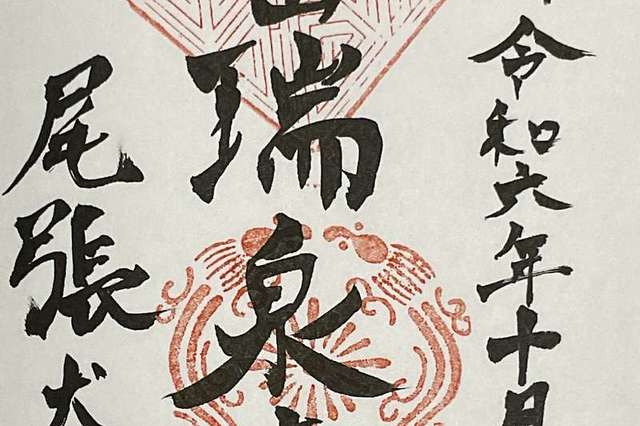 令和六年十月
瑞泉
尾張犬